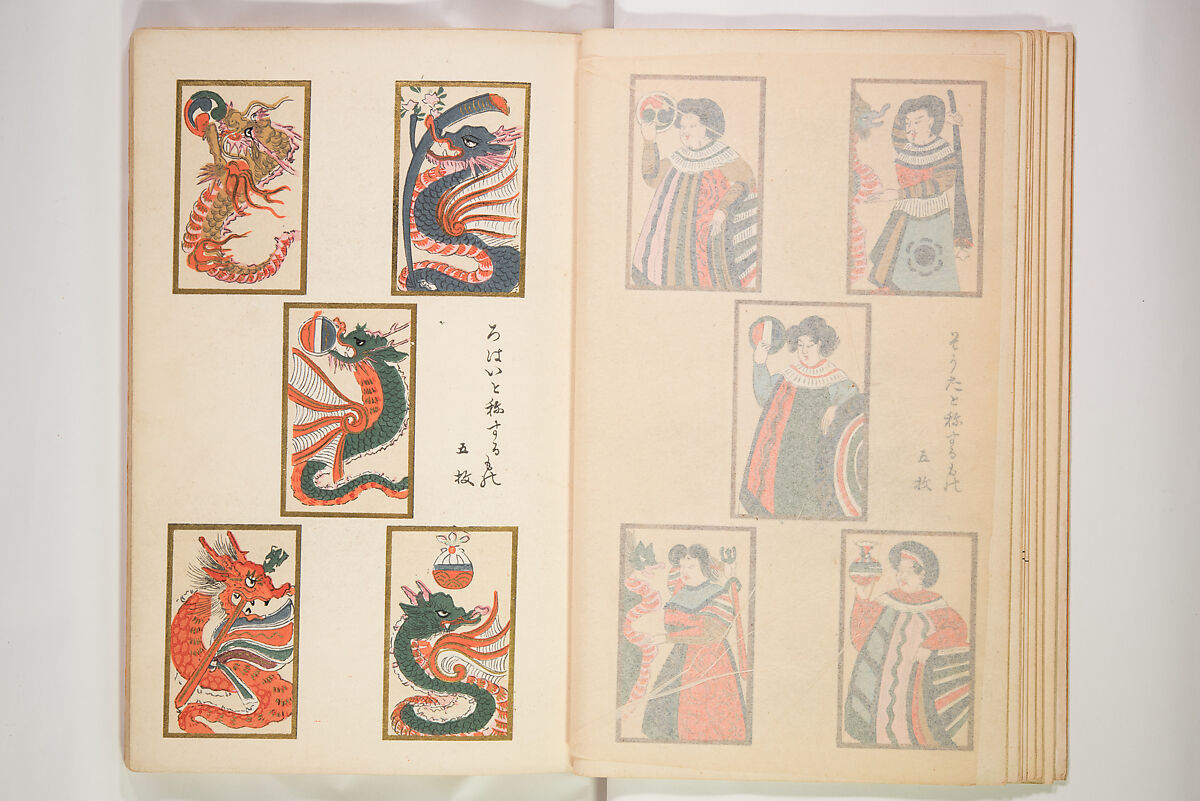 そうたと称するもの
五枚
ろはいと称するもの
五枚